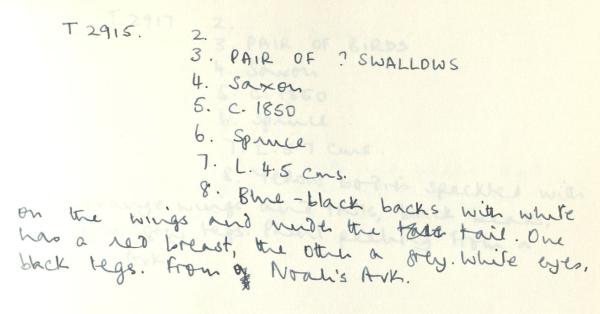 T 2915. 2.
3. PAIR OF ? SWALLOWS
4. Saxon
5. C. 1850
6. Spruce
7. L. 4.5 cms.
8. Blue-black backs with white
on the wings and under the tail. One
has a red breast, the other a grey. White eyes,
black legs. From Noah's Ark.